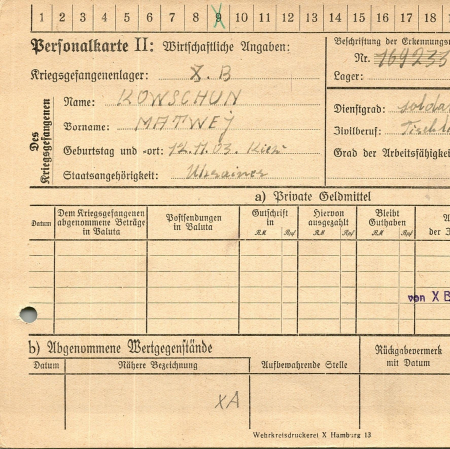 1 2 3 4 5 6 7 8 9 10 11 12 13 14 15 16 17 18
Personalkarte II: Wirtschaftliche Angaben:
Beschriftung der Erkennungs
Nr.
Kriegsgefangenenlager: X. B
Lager:
Des Kriegsgefangenen
Name: KOWSCHUN
Vorname: MATWEJ
Geburtstag und -ort: 12.11.03. Kiew
Staatsangehörigkeit: Ukrainer
Dienstgrad: Soldat
Zivilberuf: Tischl
Grad der Arbeitsfähigkei
a) Private Geldmittel
Datum
Dem Kriegsgefangenen abgenommene Beträge in Valuta
Postsendungen in Valuta
Gutschrift in
RM Rpf
Hiervon ausgezahlt
RM Rpf
Bleibt Guthaben
RM Rpf
der
von X B
b) Abgenommene Wertgegenstände
Datum
Nähere Bezeichnung
Aufbewahrende Stelle
Rückgabevermerk mit Datum
XA
Wehrkreisdruckerei X Hamburg 13